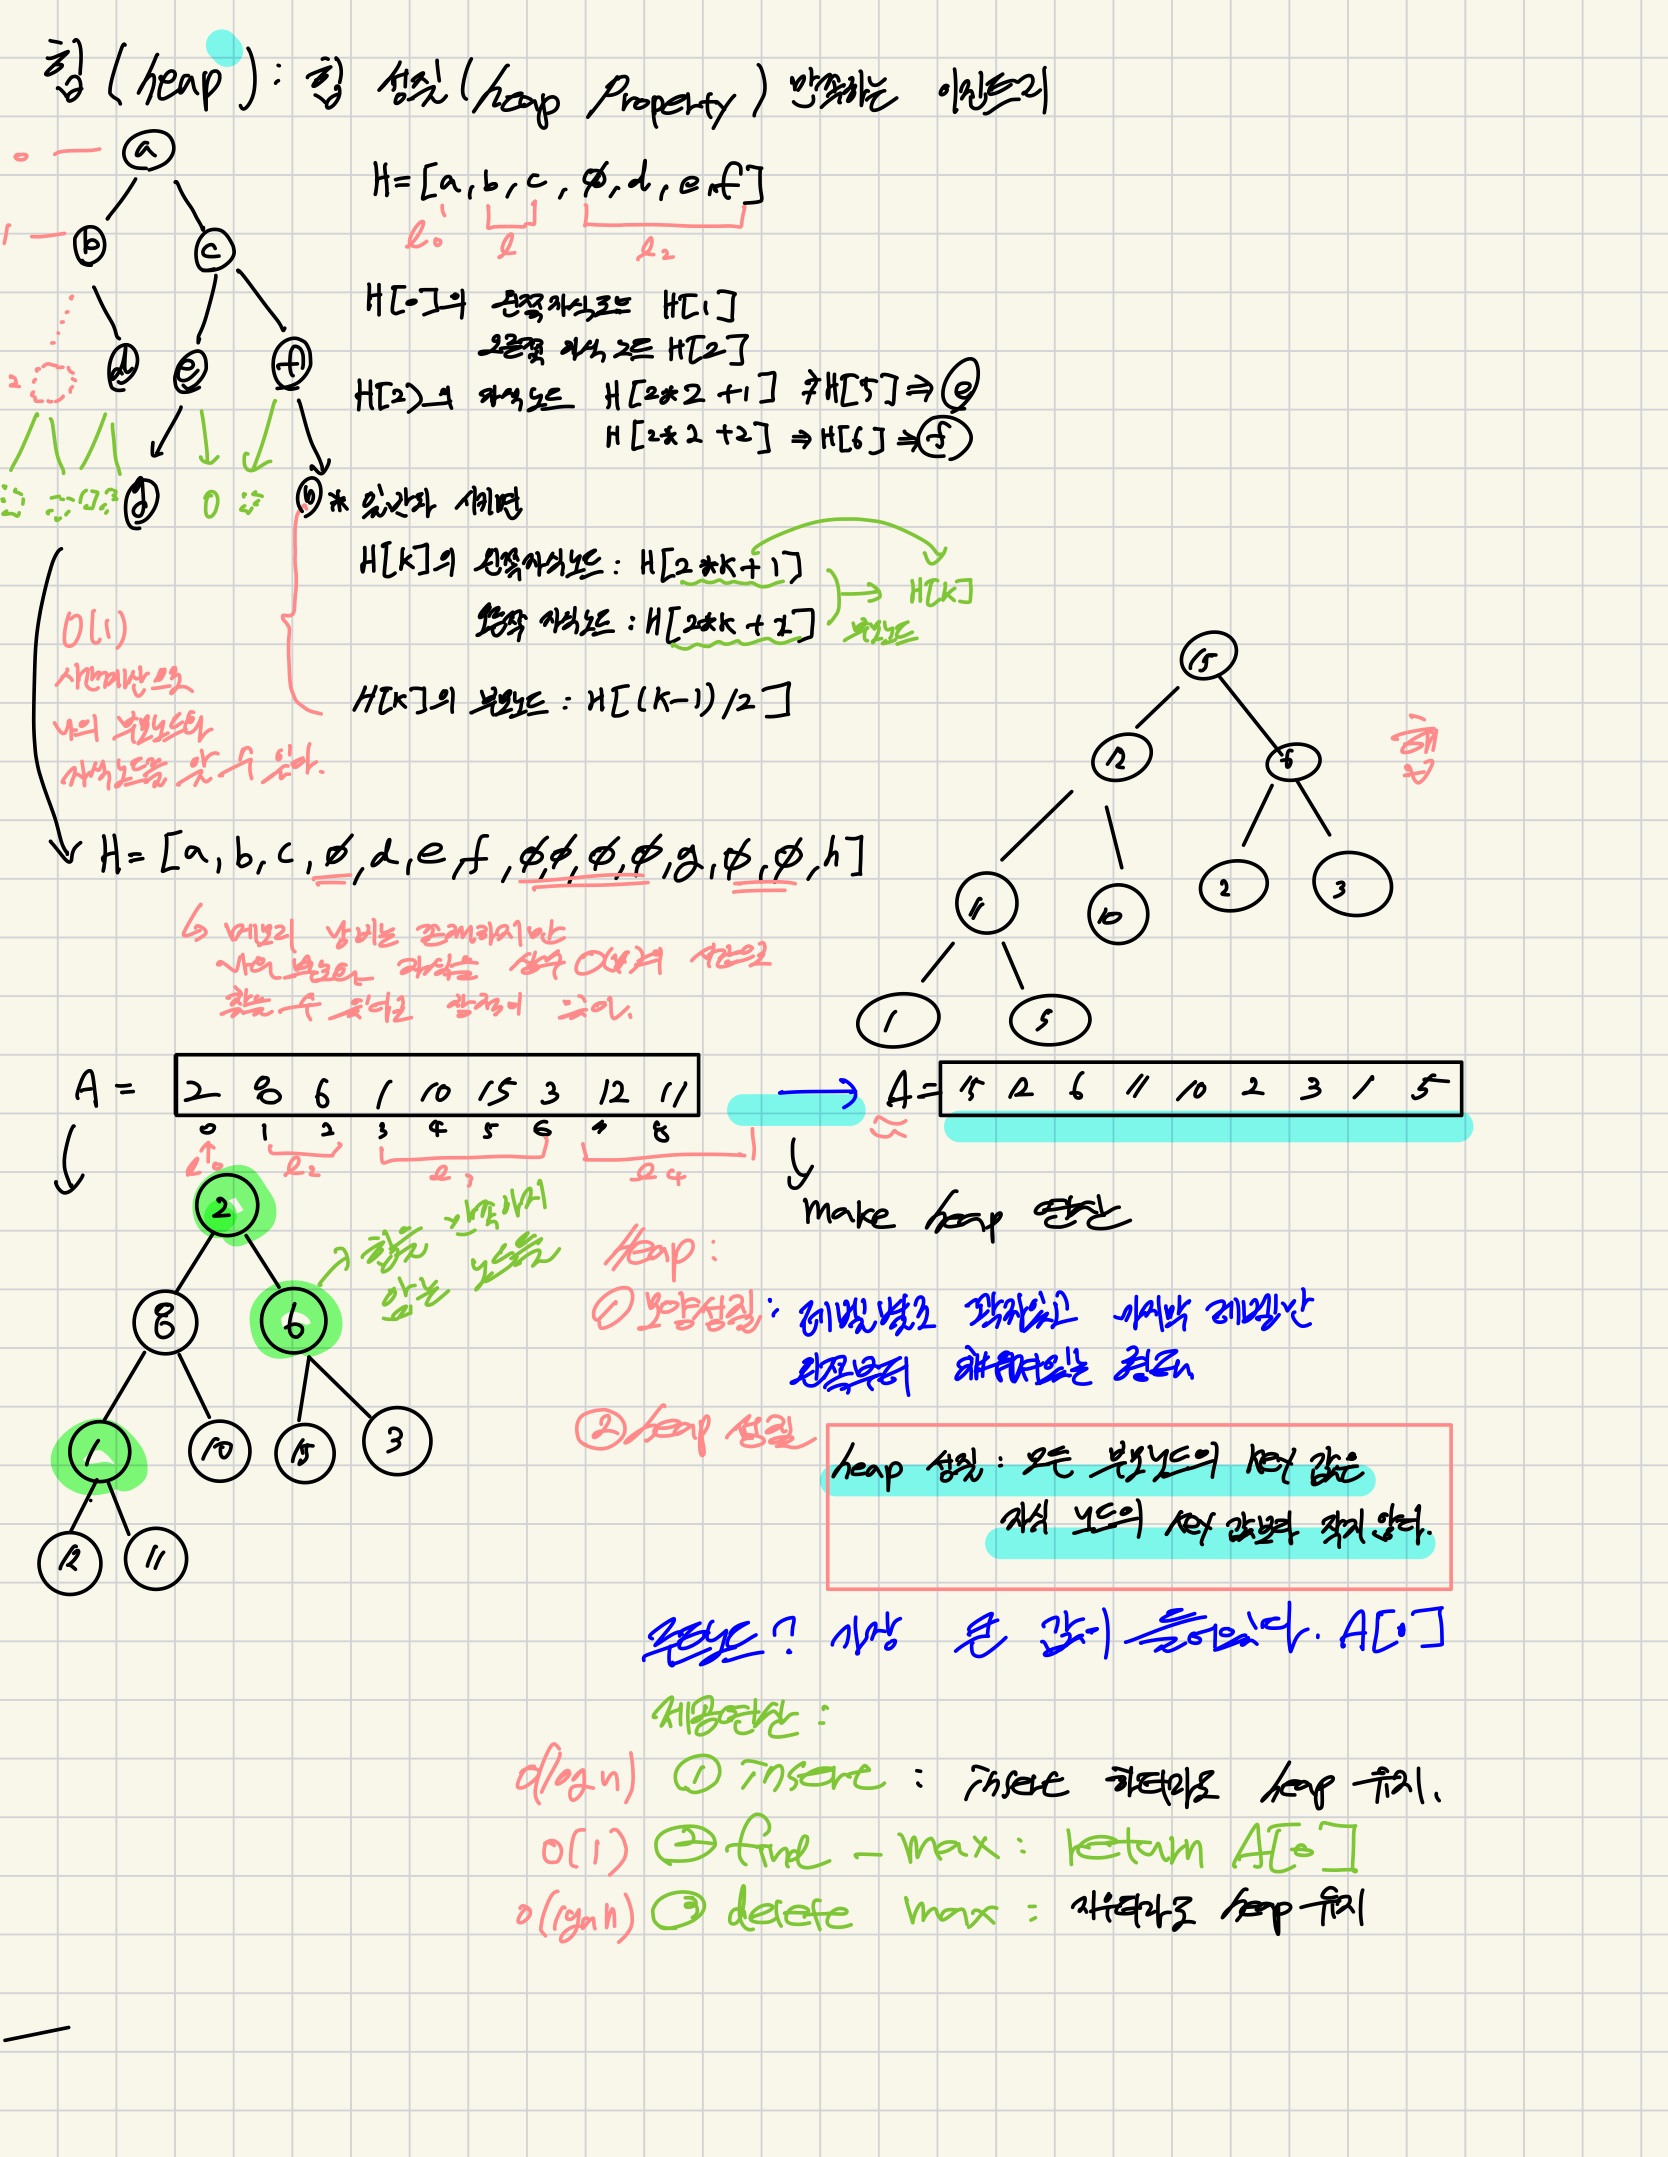 힙 (heap) : 힙 성질 (heap Property) 만족하는 이진트리
0
a
H = [a, b, c, ∅, d, e, f]
l₀ l l₂
1
b c
H[0]의 왼쪽 자식노드 H[1]
오른쪽 자식 노드 H[2]
2
d e f
H[2]의 자식노드 H[2*2+1] ⇒ H[5] ⇒ e
H[2*2+2] ⇒ H[6] ⇒ f
* 일반화 시키면
H[k]의 왼쪽자식노드 : H[2*k+1]
→ H[k]
부모노드
오른쪽 자식노드 : H[2*k+2]
H[k]의 부모노드 : H[(k-1)/2]
O(1)
나의 부모노드와
자식노드를 찾을 수 있다.
H = [a, b, c, ∅, d, e, f, ∅, ∅, ∅, ∅, g, ∅, ∅, h]
메모리 낭비는 존재하지만
나의 부모와 자식을 상수 시간으로
찾을 수 있다고 장점이 있어.
15
12 6
11 10 2 3
1 5
힙
A = 2 8 6 1 10 15 3 12 11
0 1 2 3 4 5 6 7 8
→ A = 15 12 6 11 10 2 3 1 5
l₀ l₂ l₃ l₄
make heap 연산
2
8 6
힙을 만족하지
않는 노드들
1 10 15 3
12 11
heap :
① 모양성질 : 레벨별로 꽉차있고 마지막 레벨만
왼쪽부터 채워져있는 형태
② heap 성질
heap 성질 : 모든 부모노드의 key 값은
자식 노드의 key 값보다 작지 않다.
루트노드? 가장 큰 값이 들어있다. A[0]
제공연산 :
O(logn) ① insert : insert 하더라도 heap 유지.
O(1) ② find - max : return A[0]
O(logn) ③ delete max : 지우더라도 heap 유지